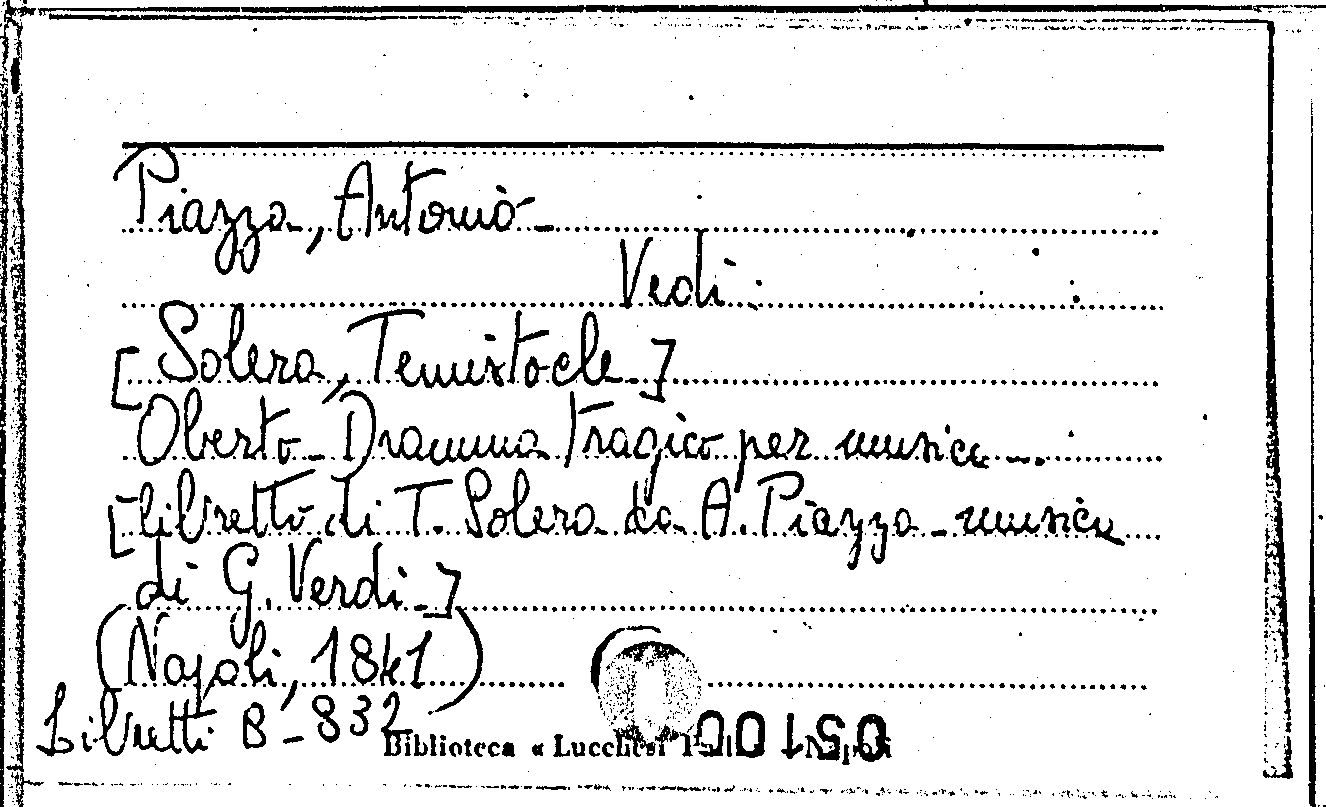 Piazza, Antonio -
Vedi:
[Solera, Temistocle]
Oberto - Dramma tragico per musica ...
[libretto di T. Solera da A. Piazza - musica
di G. Verdi -]
(Napoli, 1841)
Libretti B - 832
Biblioteca « Lucchesi